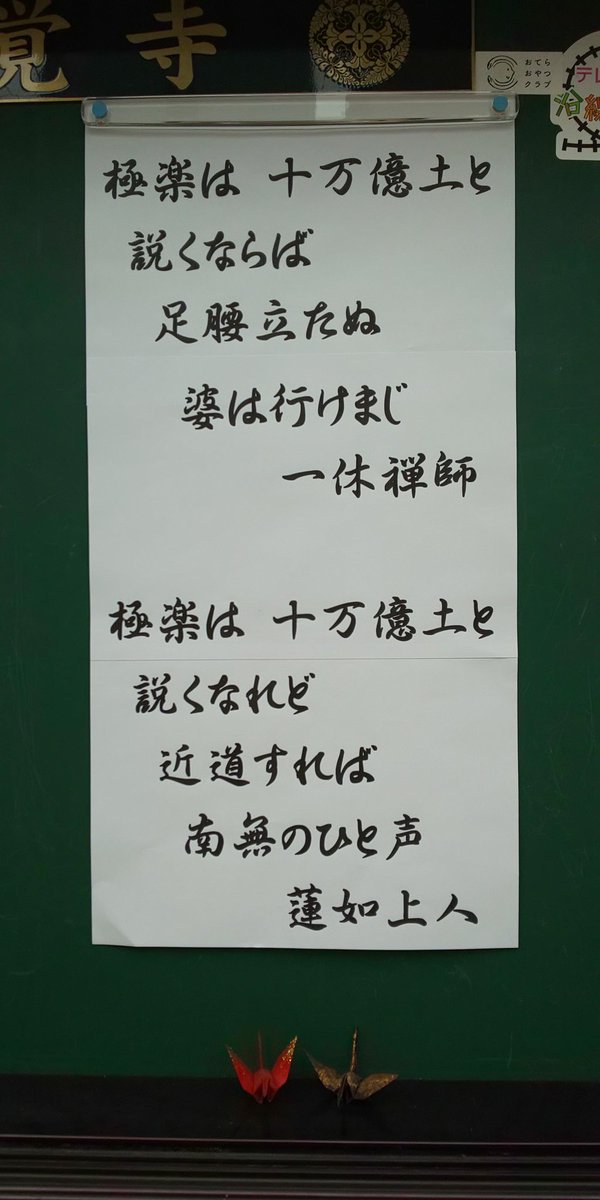 覚寺
おてら
おやつ
クラブ
テレ
沿線
極楽は 十万億土と
説くならば
足腰立たぬ
婆は行けまじ
一休禅師
極楽は 十万億土と
説くなれど
近道すれば
南無のひと声
蓮如上人